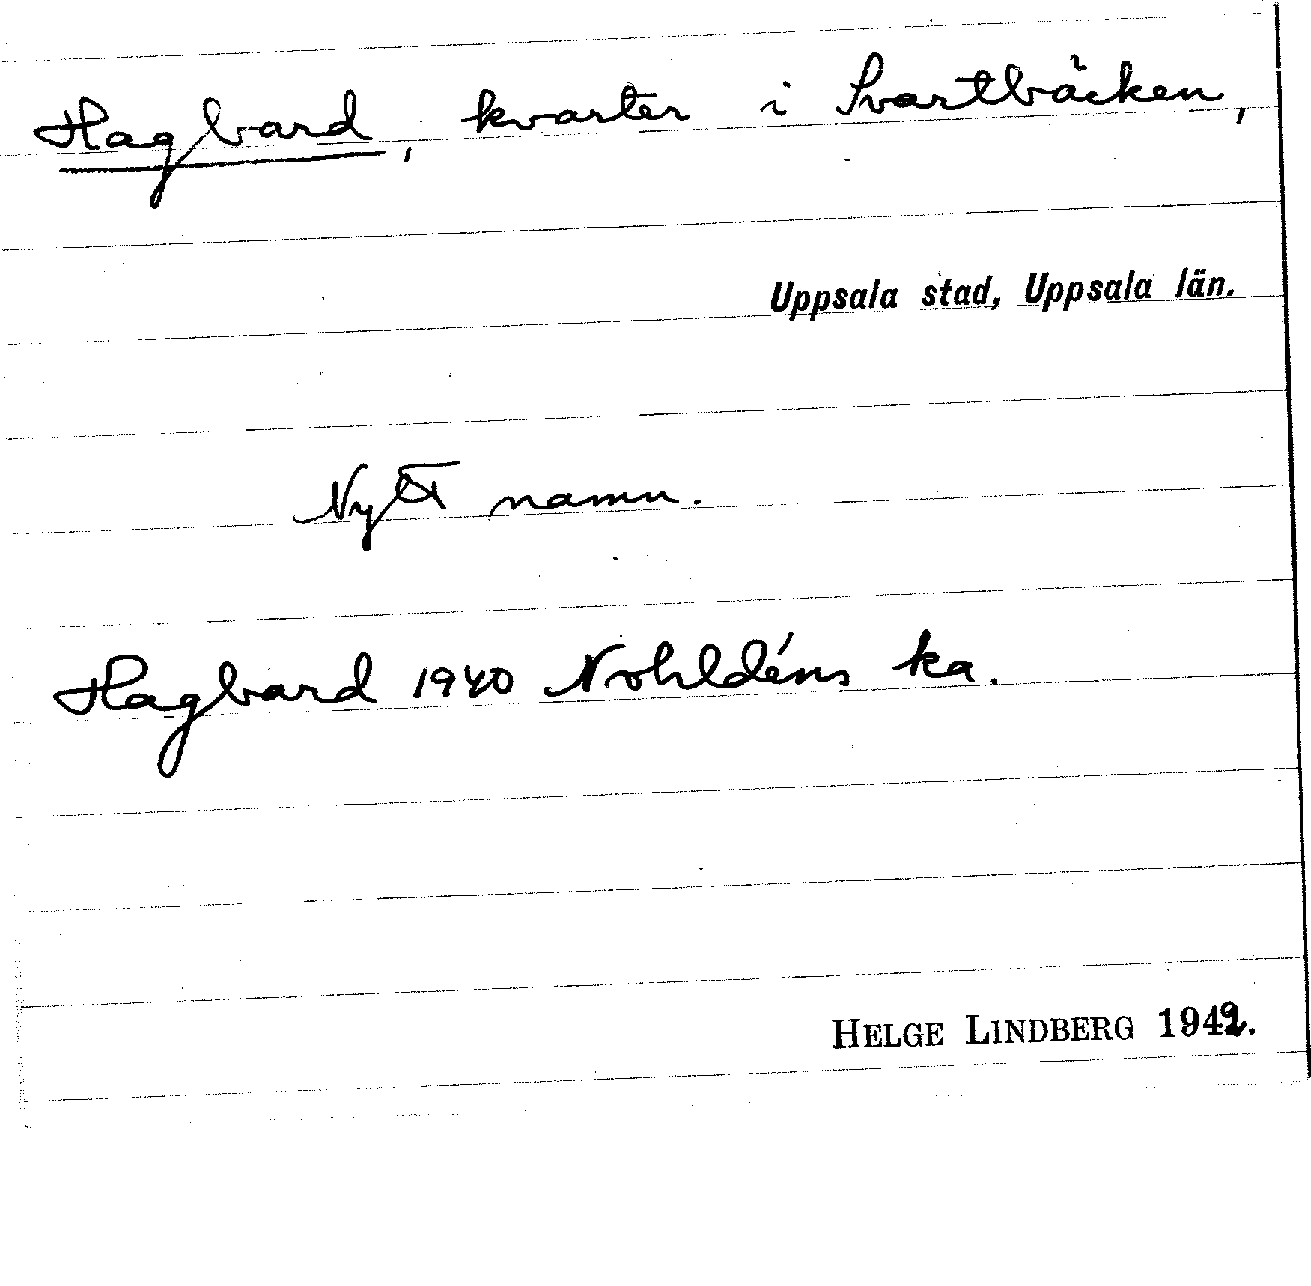 Hagbard, kvarter i Svartbäcken,
Uppsala stad, Uppsala län.
Nytt namn.
Hagbard 1940 Nohldéns ka.
HELGE LINDBERG 1942.